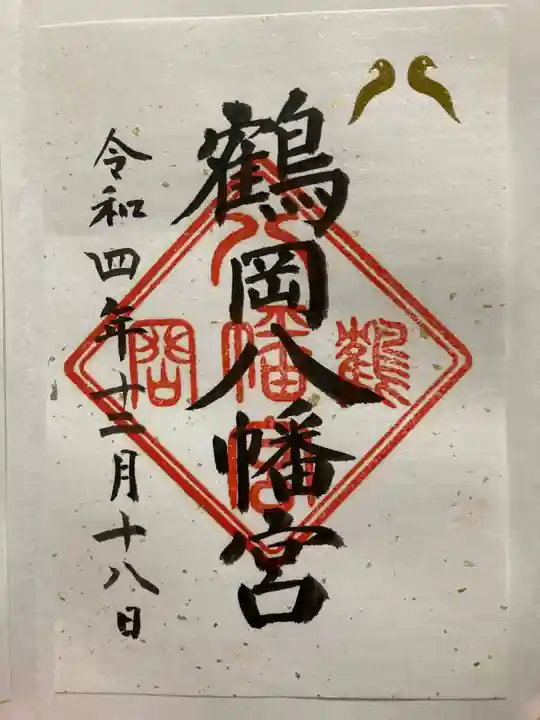 鶴岡八幡宮
令和四年十二月十八日
鶴
八幡宮
岡